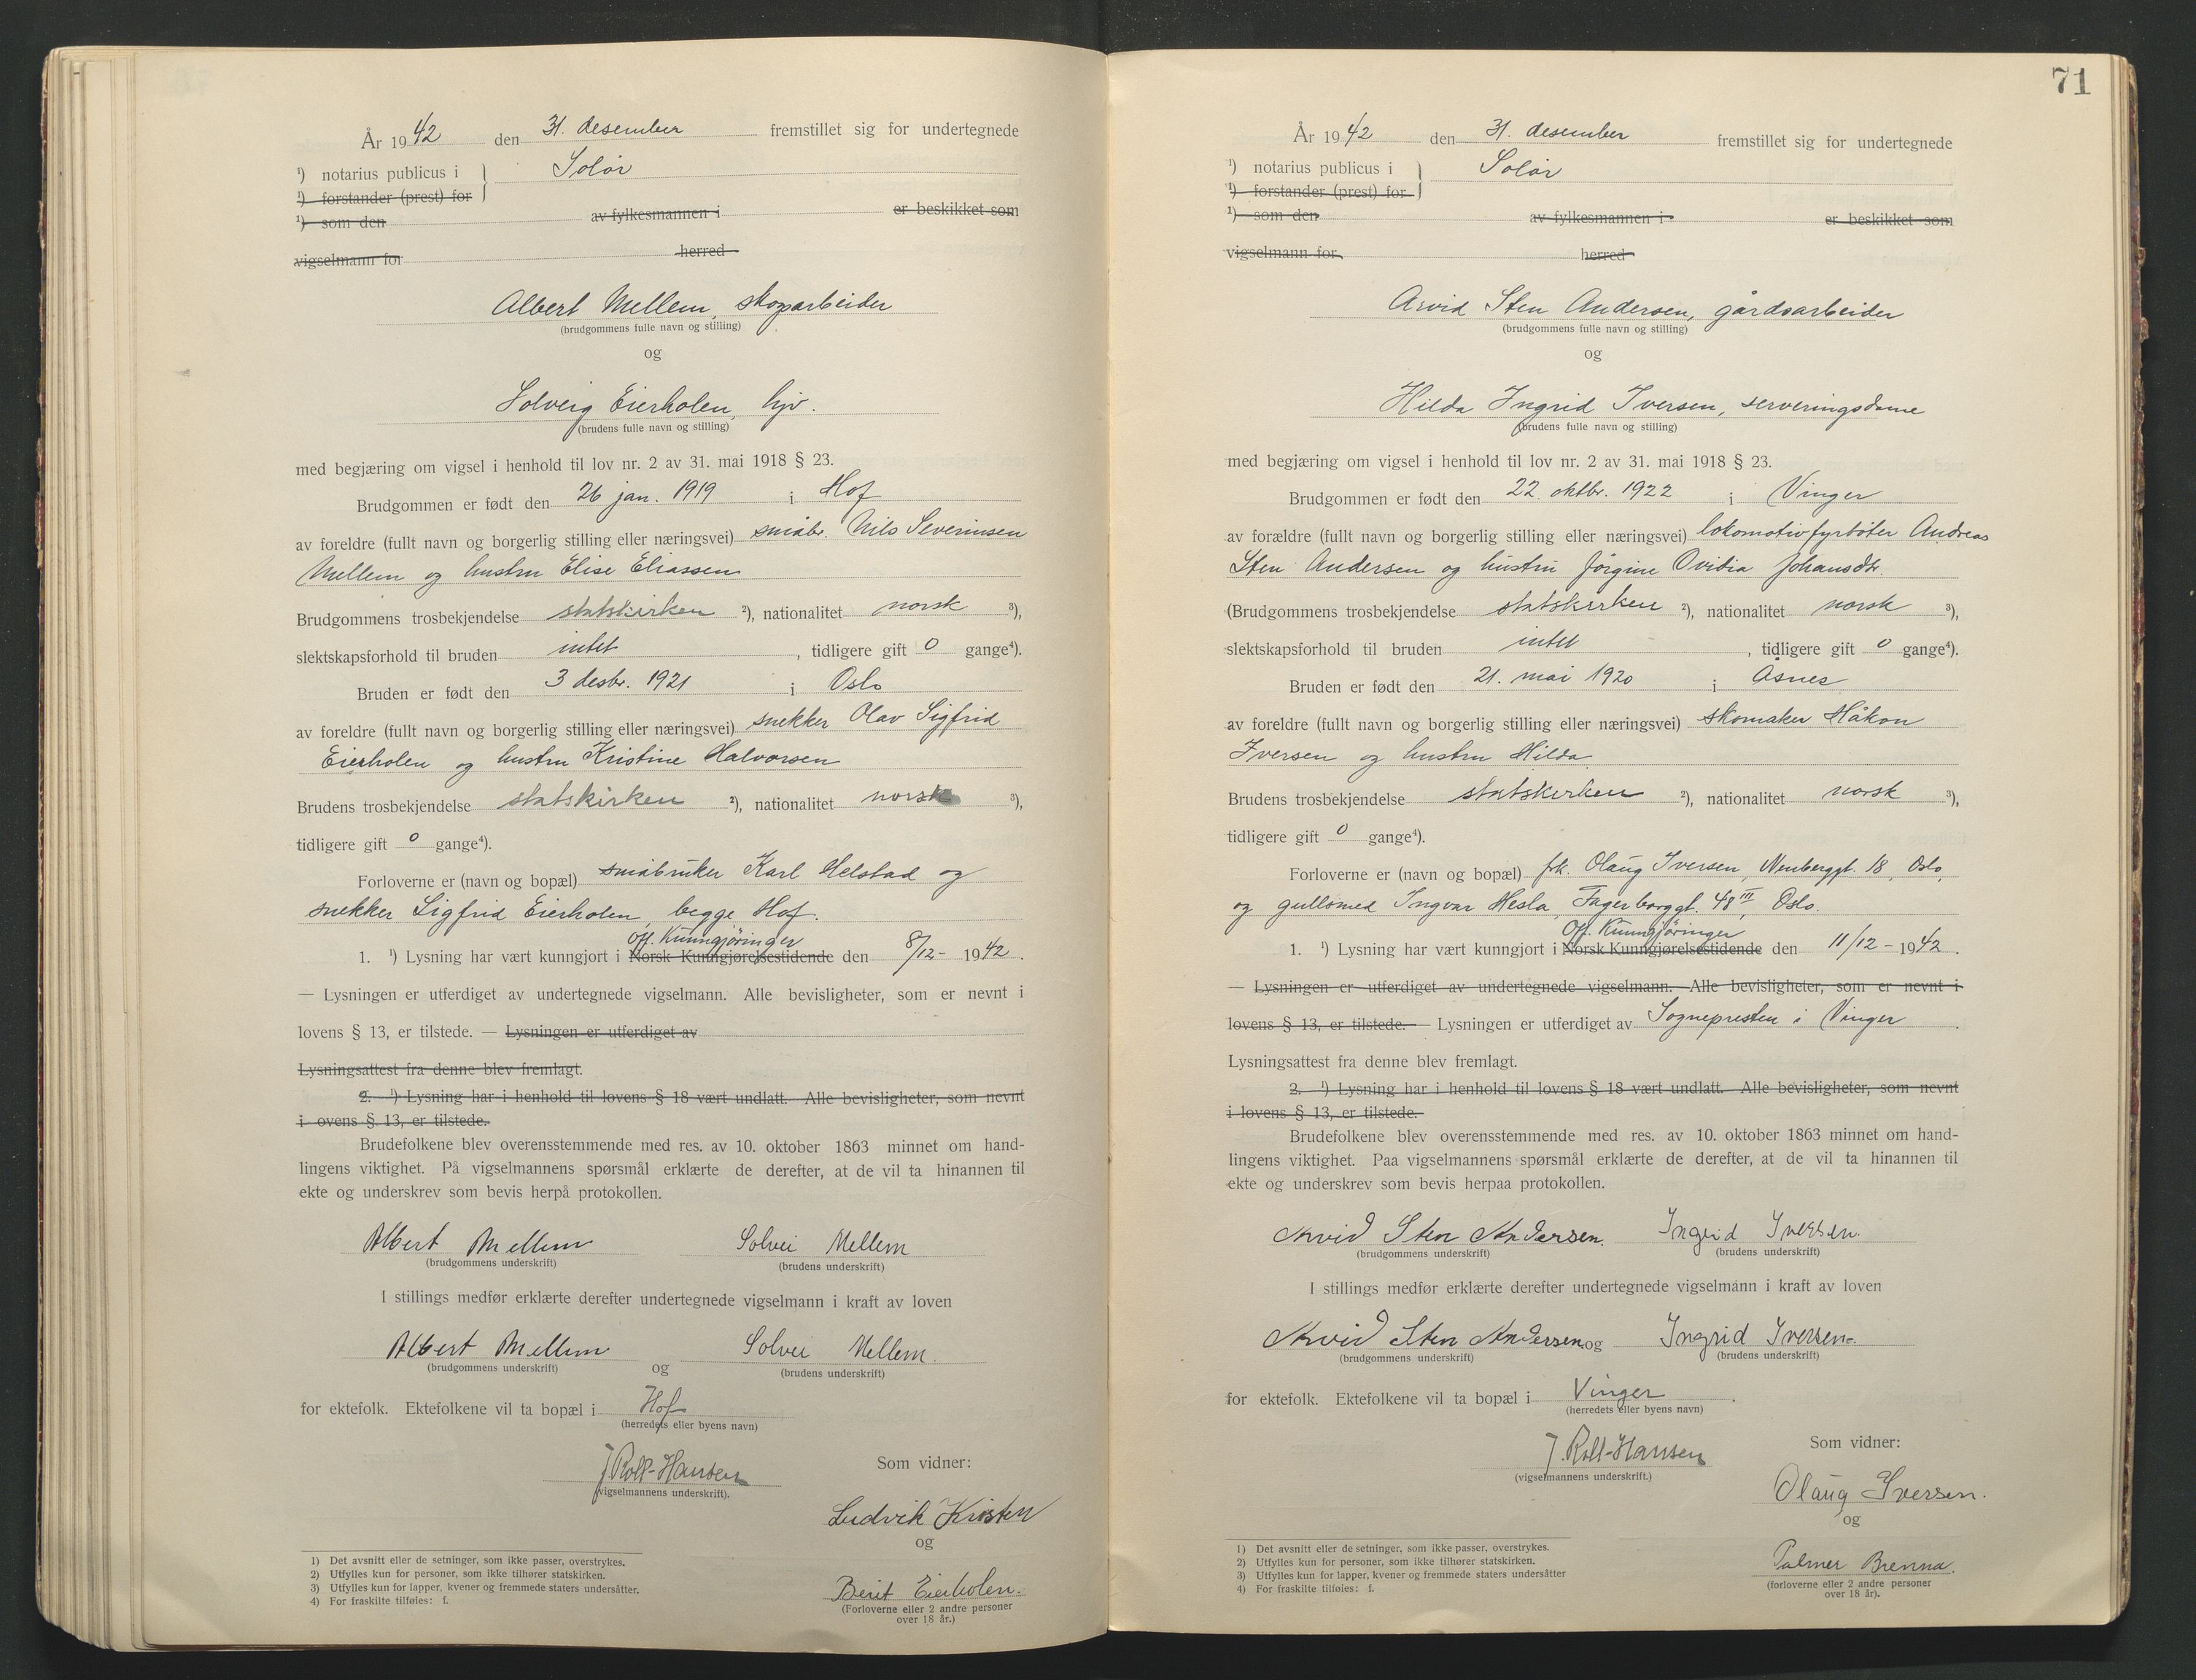 År 1942 den 31. desember fremstillet sig for undertegnede
¹) notarius publicus i } Solør
¹) forstander (prest) for
¹) som den av fylkesmannen i er beskikket som
vigselmann for herred
Albert Mellem, skogarbeider
(brudgommens fulle navn og stilling)
og
Solveig Eierholen, hjv.
(brudens fulle navn og stilling)
med begjæring om vigsel i henhold til lov nr. 2 av 31. mai 1918 § 23.
Brudgommen er født den 26 jan. 1919 i Hof
av foreldre (fullt navn og borgerlig stilling eller næringsvei) småbr. Nils Severinsen
Mellem og hustru Elise Eliassen
Brudgommens trosbekjendelse statskirken ²), nationalitet norsk ³),
slektskapsforhold til bruden intet, tidligere gift 0 gange⁴).
Bruden er født den 3 desbr. 1921 i Oslo
av foreldre (fullt navn og borgerlig stilling eller næringsvei) snekker Olav Sigfrid
Eierholen og hustru Kristine Halvorsen
Brudens trosbekjendelse statskirken ²), nationalitet norsk ³),
tidligere gift 0 gange⁴).
Forloverne er (navn og bopæl) småbruker Karl Helstad og
snekker Sigfrid Eierholen, begge Hof.
Off. Kunngjöringer
1. ¹) Lysning har vært kunngjort i Norsk Kunngjørelsestidende den 8/12 - 1942.
— Lysningen er utferdiget av undertegnede vigselmann. Alle bevisligheter, som er nevnt i
lovens § 13, er tilstede. — Lysningen er utferdiget av
Lysningsattest fra denne blev fremlagt.
2. ¹) Lysning har i henhold til lovens § 18 vært undlatt. Alle bevisligheter, som nevnt
i ovens § 13, er tilstede.
Brudefolkene blev overensstemmende med res. av 10. oktober 1863 minnet om hand-
lingens viktighet. På vigselmannens spørsmål erklærte de derefter, at de vil ta hinannen til
ekte og underskrev som bevis herpå protokollen.
Albert Mellem Solvei Mellem
(brudgommens underskrift) (brudens underskrift)
I stillings medfør erklærte derefter undertegnede vigselmann i kraft av loven
Albert Mellem og Solvei Mellem.
(brudgommens underskrift) (brudens underskrift)
for ektefolk. Ektefolkene vil ta bopæl i Hof
(herredets eller byens navn)
J. Roll-Hansen
(vigselmannens underskrift).
Som vidner:
Ludvik Kristen
og
Berit Eierholen.
(Forloverne eller 2 andre personer
over 18 år.)
1) Det avsnitt eller de setninger, som ikke passer, overstrykes.
2) Utfylles kun for personer, som ikke tilhører statskirken.
3) Utfylles kun for lapper, kvener og fremmede staters undersåtter.
4) For fraskilte tilføies: f.
71
År 1942 den 31. desember fremstillet sig for undertegnede
¹) notarius publicus i } Solør
¹) forstander (prest) for
¹) som den av fylkesmannen i er beskikket som
vigselmann for herred
Arvid Sten Andersen, gårdsarbeider
(brudgommens fulle navn og stilling)
og
Hilda Ingrid Iversen, serveringsdame
(brudens fulle navn og stilling)
med begjæring om vigsel i henhold til lov nr. 2 av 31. mai 1918 § 23.
Brudgommen er født den 22. oktbr. 1922 i Vinger
av forældre (fullt navn og borgerlig stilling eller næringsvei) lokomotivfyrbøter Andreas
Sten Andersen og hustru Jørgine Ovidia Johansdtr.
(Brudgommens trosbekjendelse statskirken ²), nationalitet norsk ³),
slektskapsforhold til bruden intet, tidligere gift 0 gange⁴).
Bruden er født den 21. mai 1920 i Åsnes
av foreldre (fullt navn og borgerlig stilling eller næringsvei) skomaker Håkon
Iversen og hustru Hilda
Brudens trosbekjendelse statskirken ²), nationalitet norsk ³),
tidligere gift 0 gange⁴).
Forloverne er (navn og bopæl) frk. Olaug Iversen, Neuberggt. 18, Oslo,
og gullsmed Ingvar Hesla, Fagerborggt. 48 III, Oslo.
Off. Kunngjöringer
1. ¹) Lysning har vært kunngjort i Norsk Kunngjørelsestidende den 11/12 - 1942.
— Lysningen er utferdiget av undertegnede vigselmann. Alle bevisligheter, som er nevnt i
lovens § 13, er tilstede. — Lysningen er utferdiget av Sognepresten i Vinger.
Lysningsattest fra denne blev fremlagt.
2. ¹) Lysning har i henhold til lovens § 18 vært undlatt. Alle bevisligheter, som nevnt
i lovens § 13, er tilstede.
Brudefolkene blev overensstemmende med res. av 10. oktober 1863 minnet om hand-
lingens viktighet. Paa vigselmannens spørsmål erklærte de derefter, at de vil ta hinannen til
ekte og underskrev som bevis herpaa protokollen.
Arvid Sten Andersen. Ingrid Iversen.
(brudgommens underskrift) (brudens underskrift)
I stillings medfør erklærte derefter undertegnede vigselmann i kraft av loven
Arvid Sten Andersen og Ingrid Iversen.
(brudgommens underskrift) (brudens underskrift)
for ektefolk. Ektefolkene vil ta bopæl i Vinger.
(herredets eller byens navn)
J. Roll-Hansen
(vigselmannens underskrift.)
Som vidner:
Olaug Iversen.
og
Palmer Brenna.
(forloverne eller 2 andre personer
over 18 år).
1) Det avsnitt eller de setninger, som ikke passer, overstrykes.
2) Utfylles kun for personer, som ikke tilhører statskirken.
3) Utfylles kun for lapper, kvener og fremmede staters undersåtter
4) For fraskilte tilføies: f.